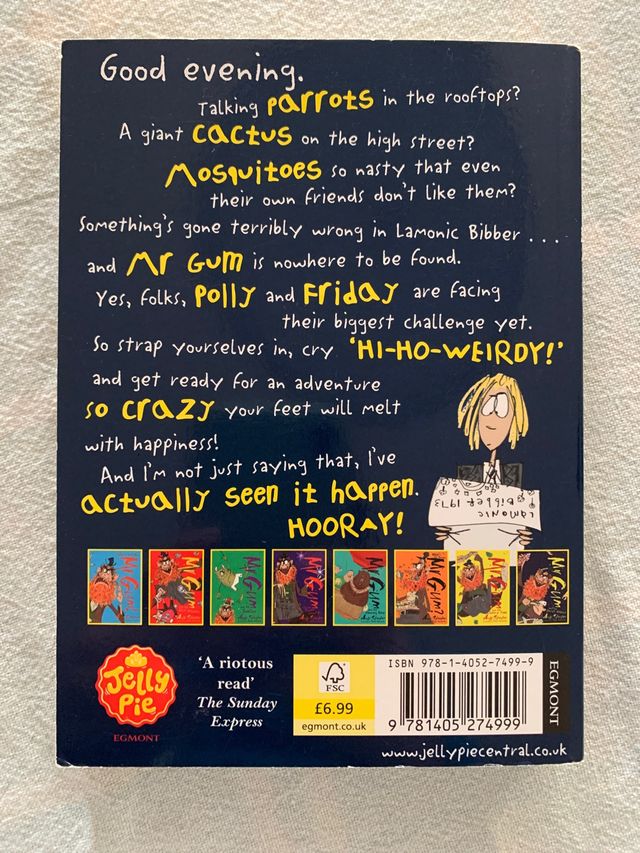 Good evening.
Talking parrots in the rooftops?
A giant cactus on the high street?
Mosquitoes so nasty that even
their own friends don't like them?
Something's gone terribly wrong in Lamonic Bibber ...
and Mr Gum is nowhere to be found.
Yes, folks, Polly and Friday are facing
their biggest challenge yet.
So strap yourselves in, cry 'HI-HO-WEIRDY!'
and get ready for an adventure
so crazy your feet will melt
with happiness!
And I'm not just saying that, I've
actually seen it happen.
HOORAY!
Lamonic
Bibber 1973
Mr Gum
Mr Gum
Mr Gum
Mr Gum
Mr Gum
Mr Gum
Mr Gum
Mr Gum
Jelly
Pie
EGMONT
'A riotous
read'
The Sunday
Express
FSC
£6.99
egmont.co.uk
ISBN 978-1-4052-7499-9
9 781405 274999
EGMONT
www.jellypiecentral.co.uk